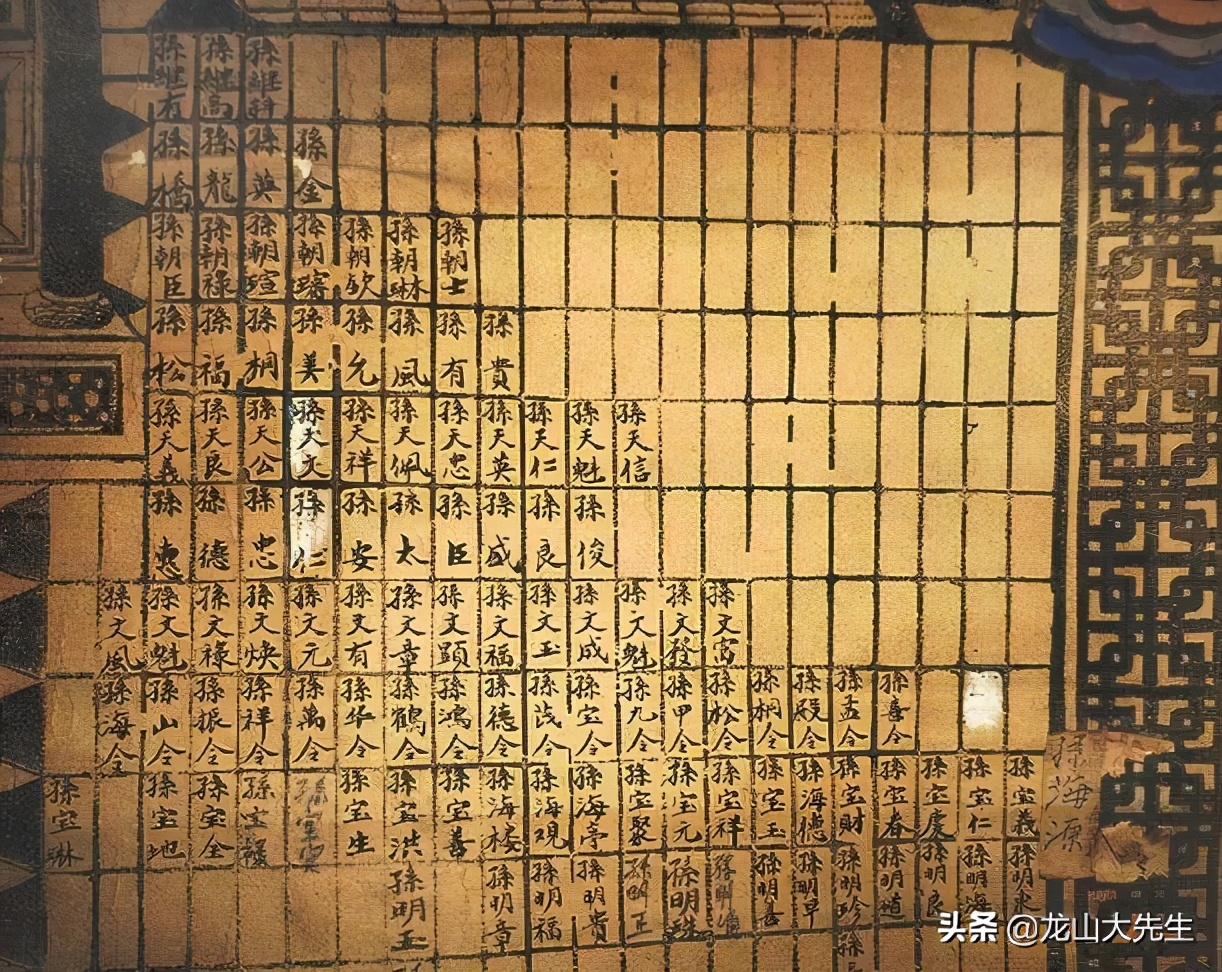 孫継有 孫継高
孫橋 孫龍 孫英 孫金
孫朝臣 孫朝祿 孫朝瑄 孫朝 孫朝欽 孫朝琳 孫朝士
孫松 孫福 孫桐 孫美 孫允 孫風 孫有 孫貴
孫天義 孫天良 孫天公 孫天文 孫天祥 孫天佩 孫天忠 孫天英 孫天仁 孫天魁 孫天信
孫惠 孫德 孫忠 孫仁 孫安 孫太 孫臣 孫成 孫良 孫俊
孫文風 孫文魁 孫文祿 孫文焕 孫文元 孫文有 孫文章 孫文顕 孫文福 孫文玉 孫文成 孫文魁 孫文發 孫文富
孫海令 孫山令 孫振令 孫祥令 孫萬令 孫华令 孫鶴令 孫鴻令 孫德令 孫茂令 孫宝令 孫九令 孫甲令 孫松令 孫桐令 孫殿令 孫孟令 孫喜令
孫宝琳 孫宝地 孫宝全 孫宝祿 孫宝生 孫宝洪 孫宝善 孫海楼 孫海观 孫海亭 孫宝聚 孫宝元 孫宝祥 孫宝玉 孫海德 孫宝財 孫宝春 孫宝慶 孫宝仁 孫宝義
孫海源
孫明玉 孫明章 孫明福 孫明貴 孫明正 孫明珠 孫明 孫明 孫明 孫明珍 孫明 孫明良 孫明海 孫明永
头条 @龙山大先生